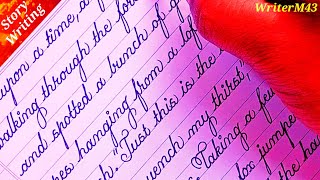 Story
Writing
WriterM43
upon a time, a f
walking through the for
and spotted a bunch of g
es hanging from a lof
h. "Just this is the
uench my thirst",
Taking a few
fox jumpe
the ha